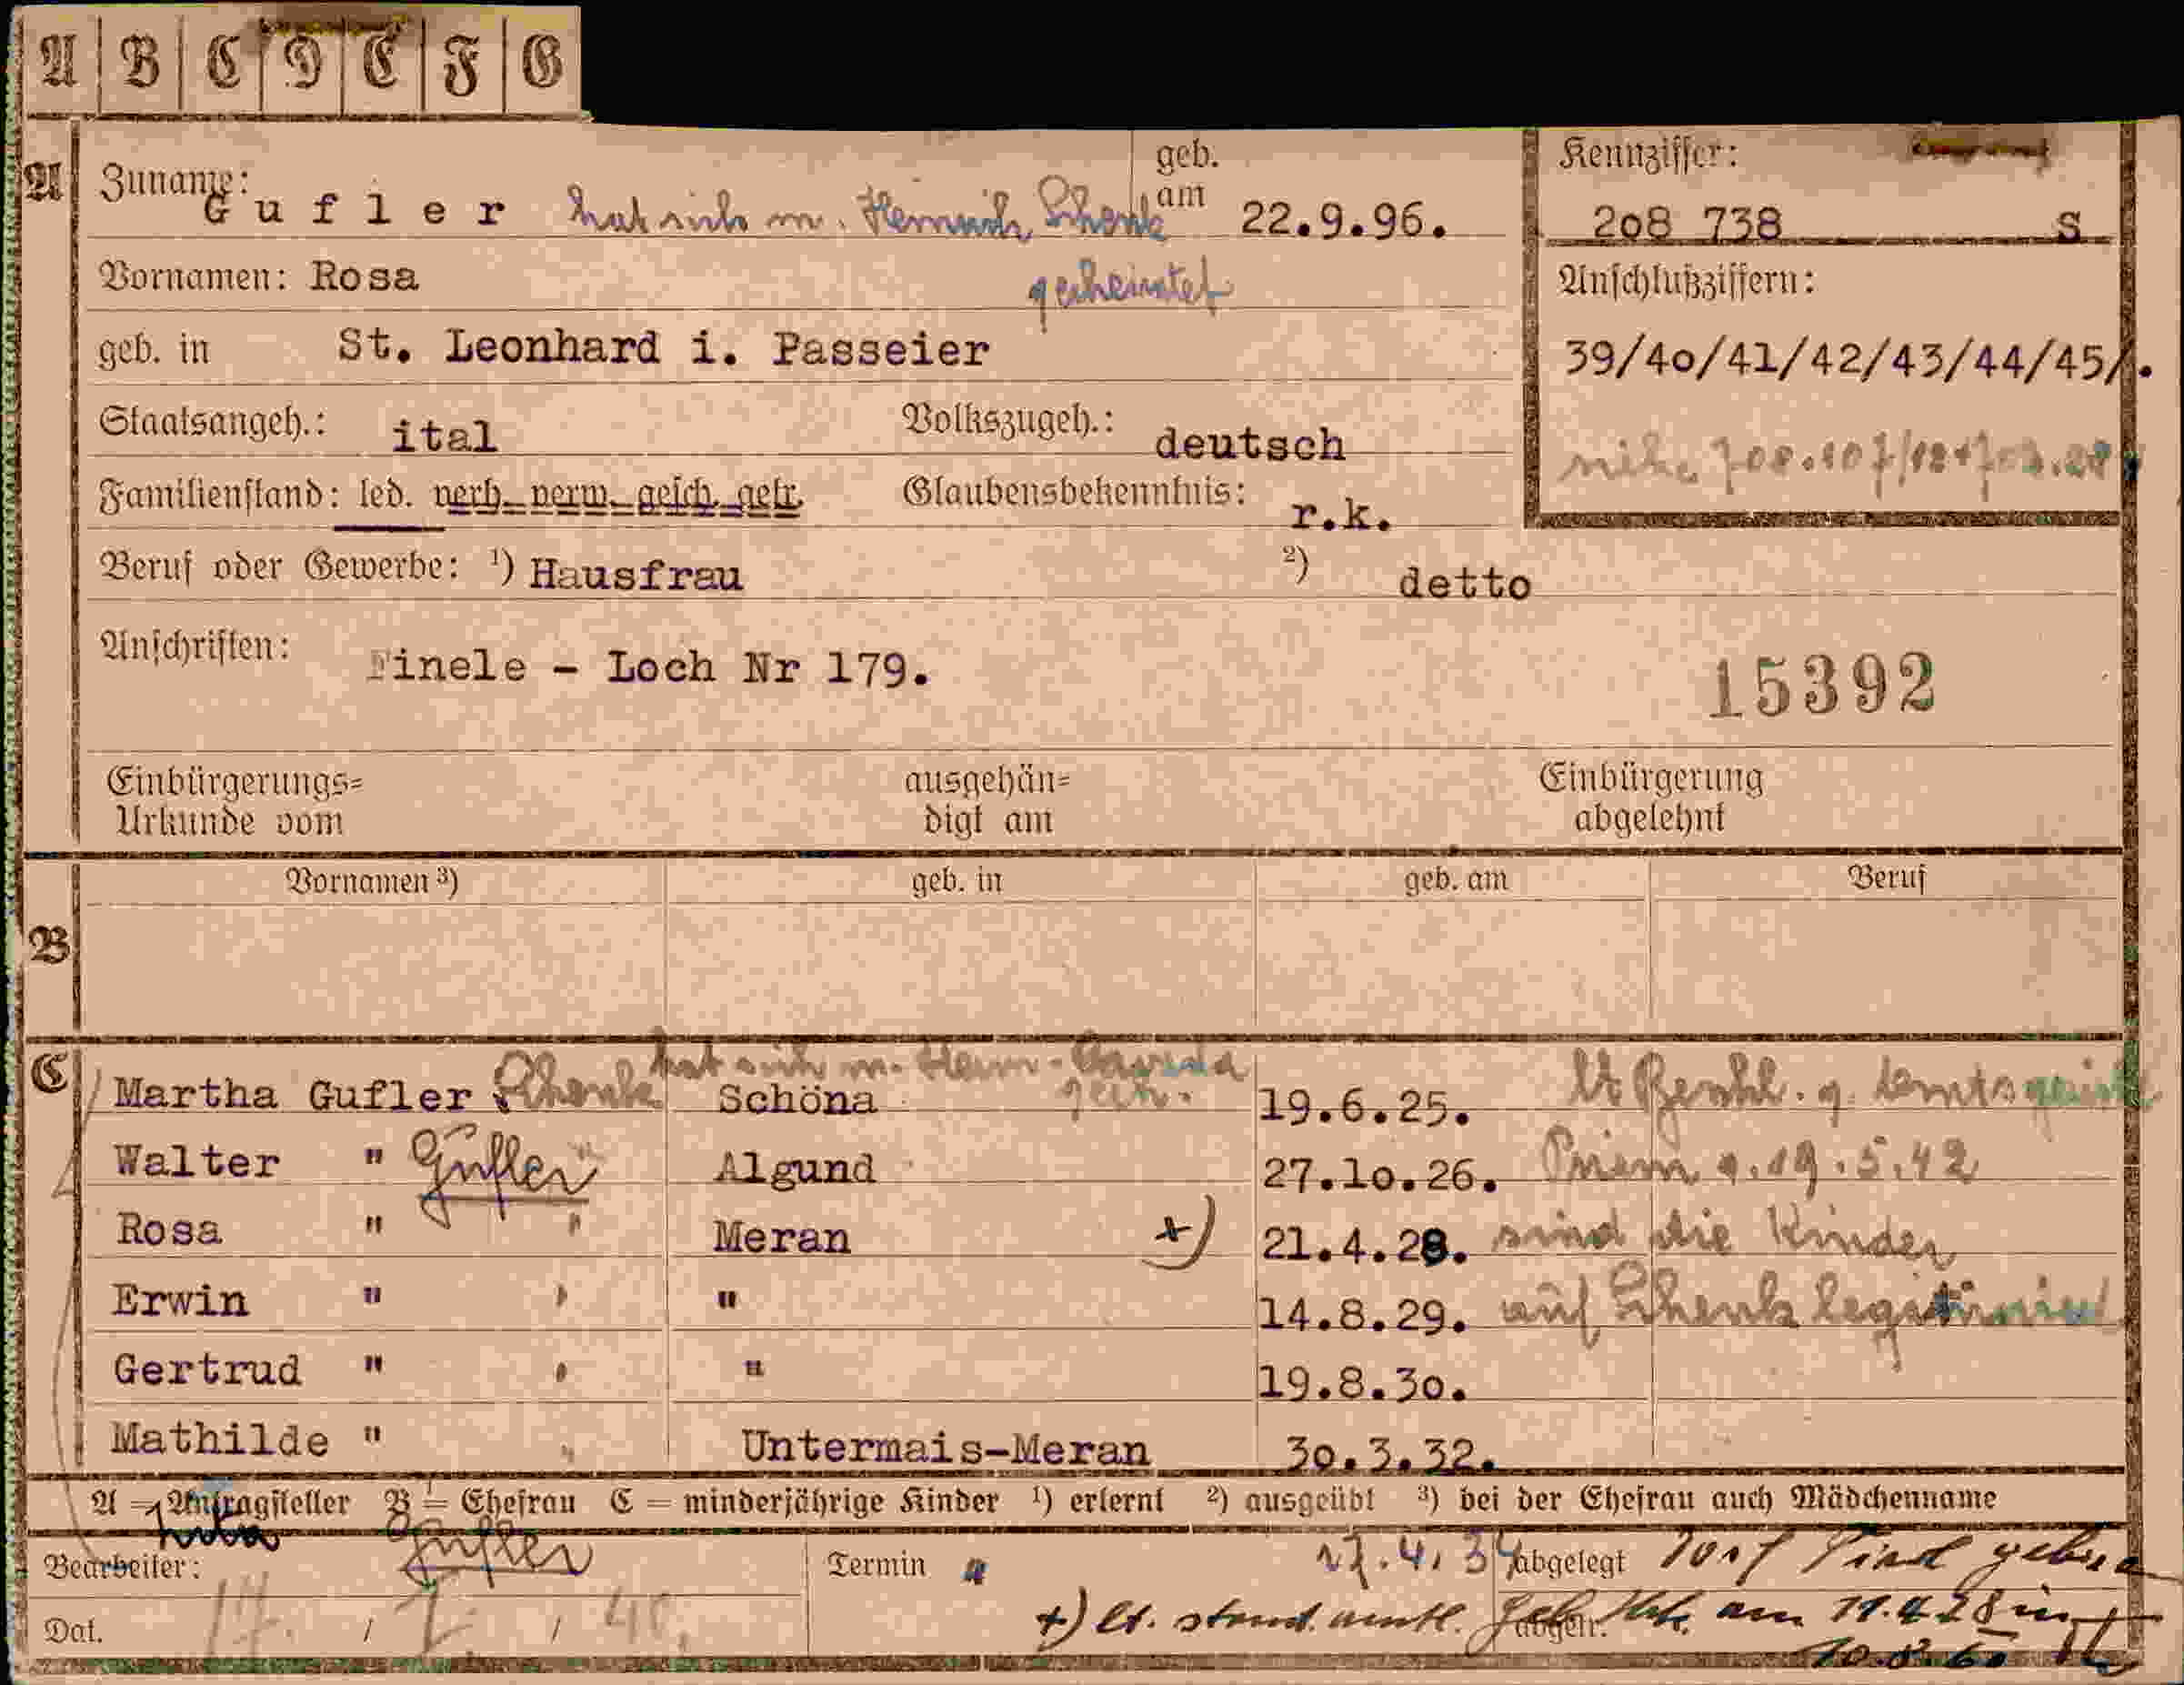 A B C D E F G
A Zuname: Gufler hat sich m. Heinrich Schenk geb. am 22.9.96.
geheiratet
Kennziffer: 2o8 738 S
Vornamen: Rosa
Anschlußziffern:
39/4o/41/42/43/44/45/.
geb. in St. Leonhard i. Passeier
Staatsangeh.: ital Volkszugeh.: deutsch
Familienstand: led. verh. verw. gesch. getr. Glaubensbekenntnis: r.k.
Beruf oder Gewerbe: ¹) Hausfrau ²) detto
Anschriften: Finele - Loch Nr 179.
15392
Einbürgerungs= Urkunde vom
ausgehän= digt am
Einbürgerung abgelehnt
Vornamen ³) geb. in geb. am Beruf
B
hat sich m.
C Martha Gufler Schenk Schöna 19.6.25. lt
Walter " Gufler Algund 27.1o.26. 19.5.42
Rosa " " Meran +) 21.4.28. sind die Kinder
Erwin " " " 14.8.29. auf Schenk legitimiert
Gertrud " " " 19.8.3o.
Mathilde " " Untermais-Meran 3o.3.32.
A = Antragsteller B = Ehefrau C = minderjährige Kinder ¹) erlernt ²) ausgeübt ³) bei der Ehefrau auch Mädchenname
Bearbeiter: Gufler Termin 27.4.34 abgelegt
Dat. 17. / 7. / 40. +) lt. stand. amtl. abgeh. am 11.4.28 in